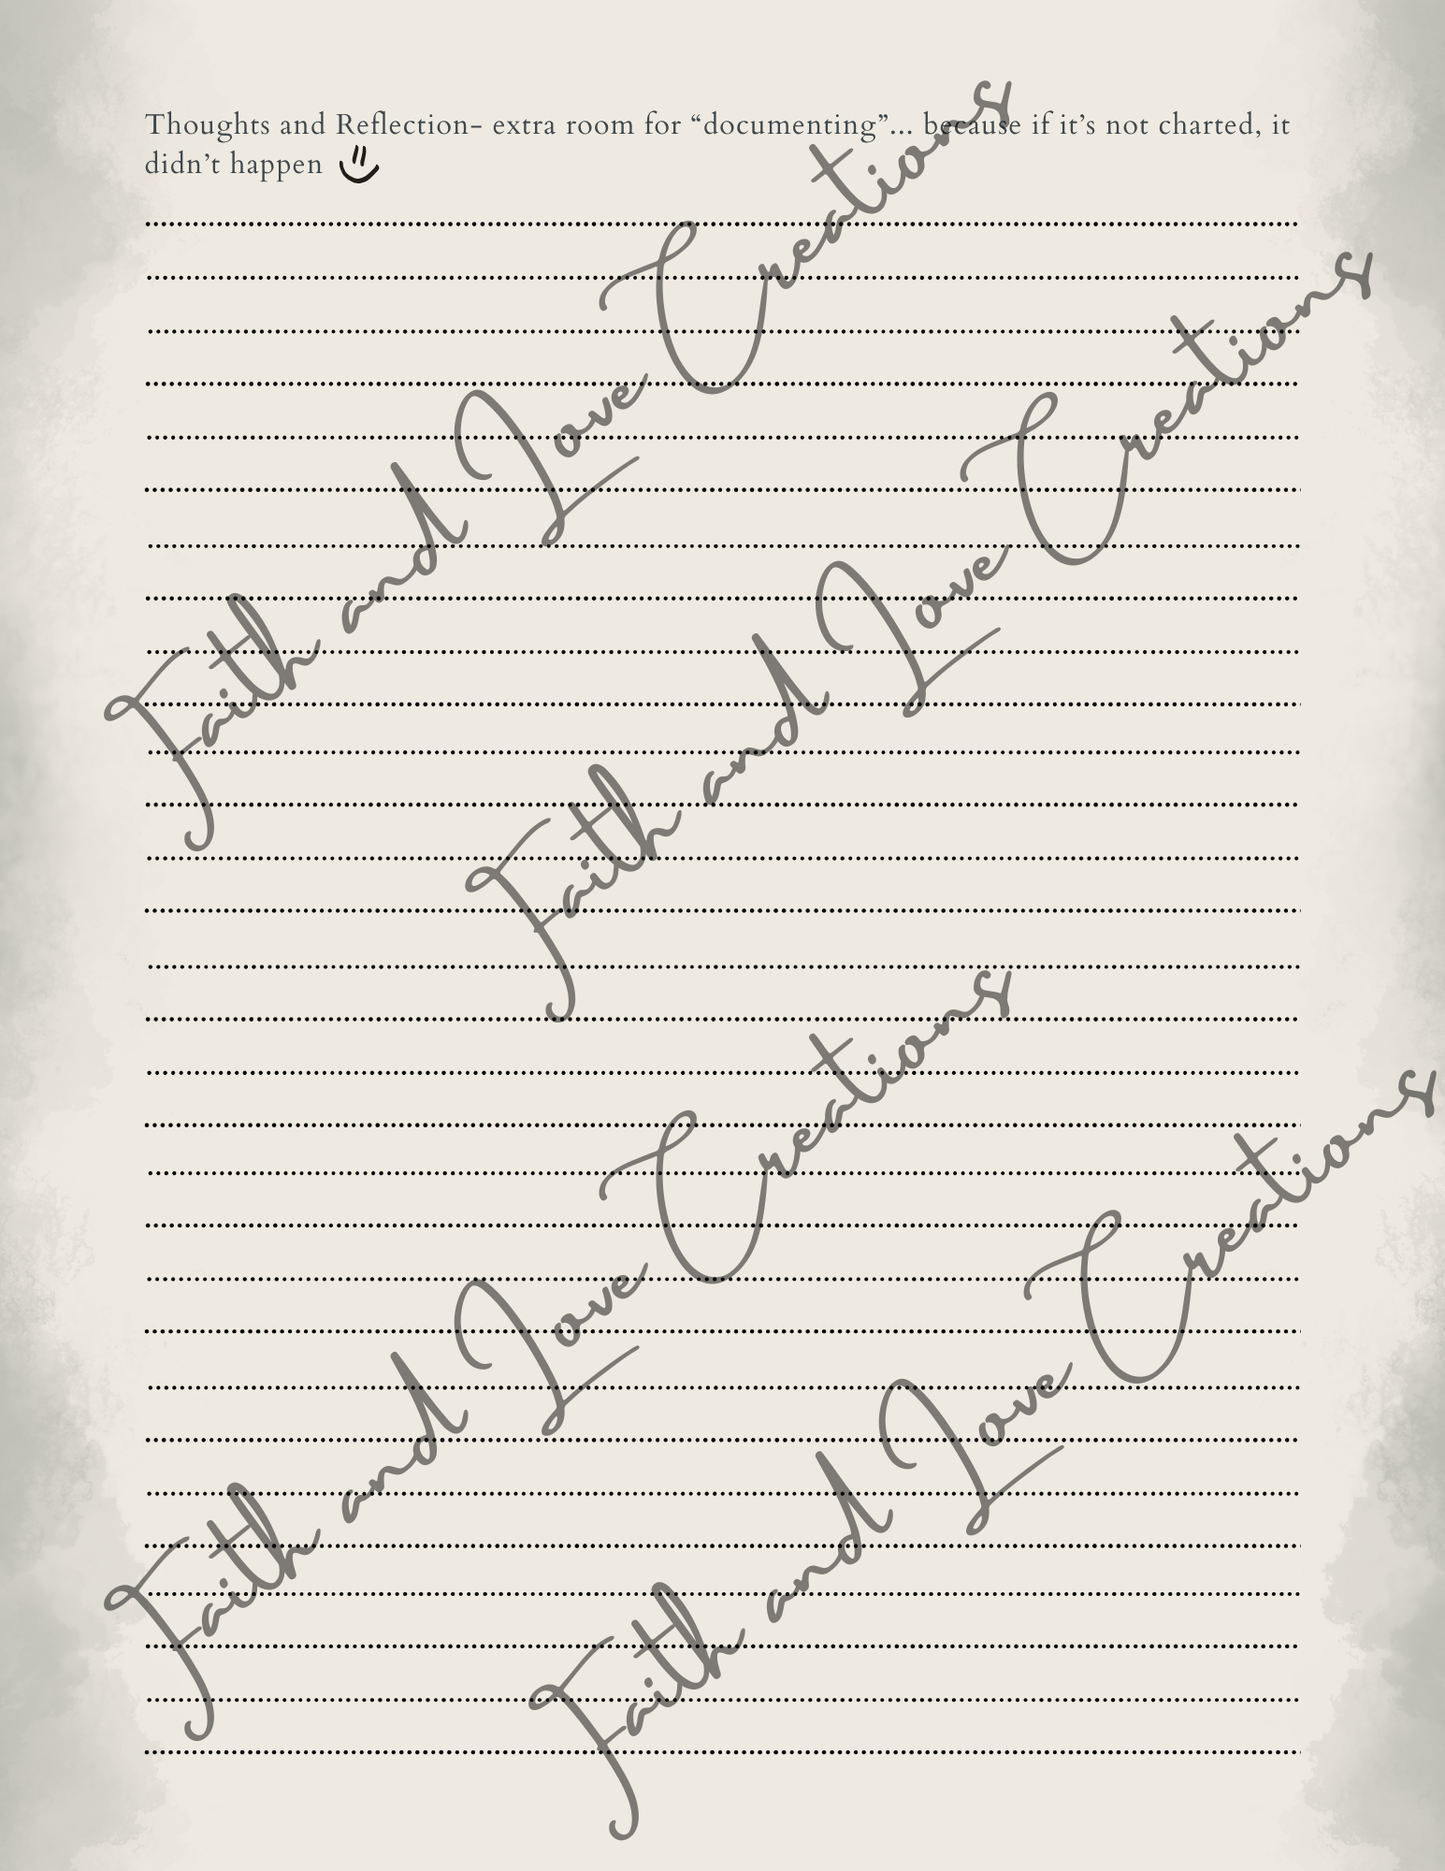 Thoughts and Reflection- extra room for “documenting”... because if it’s not charted, it
didn’t happen
Faith and Love Creations
Faith and Love Creations
Faith and Love Creations
Faith and Love Creations